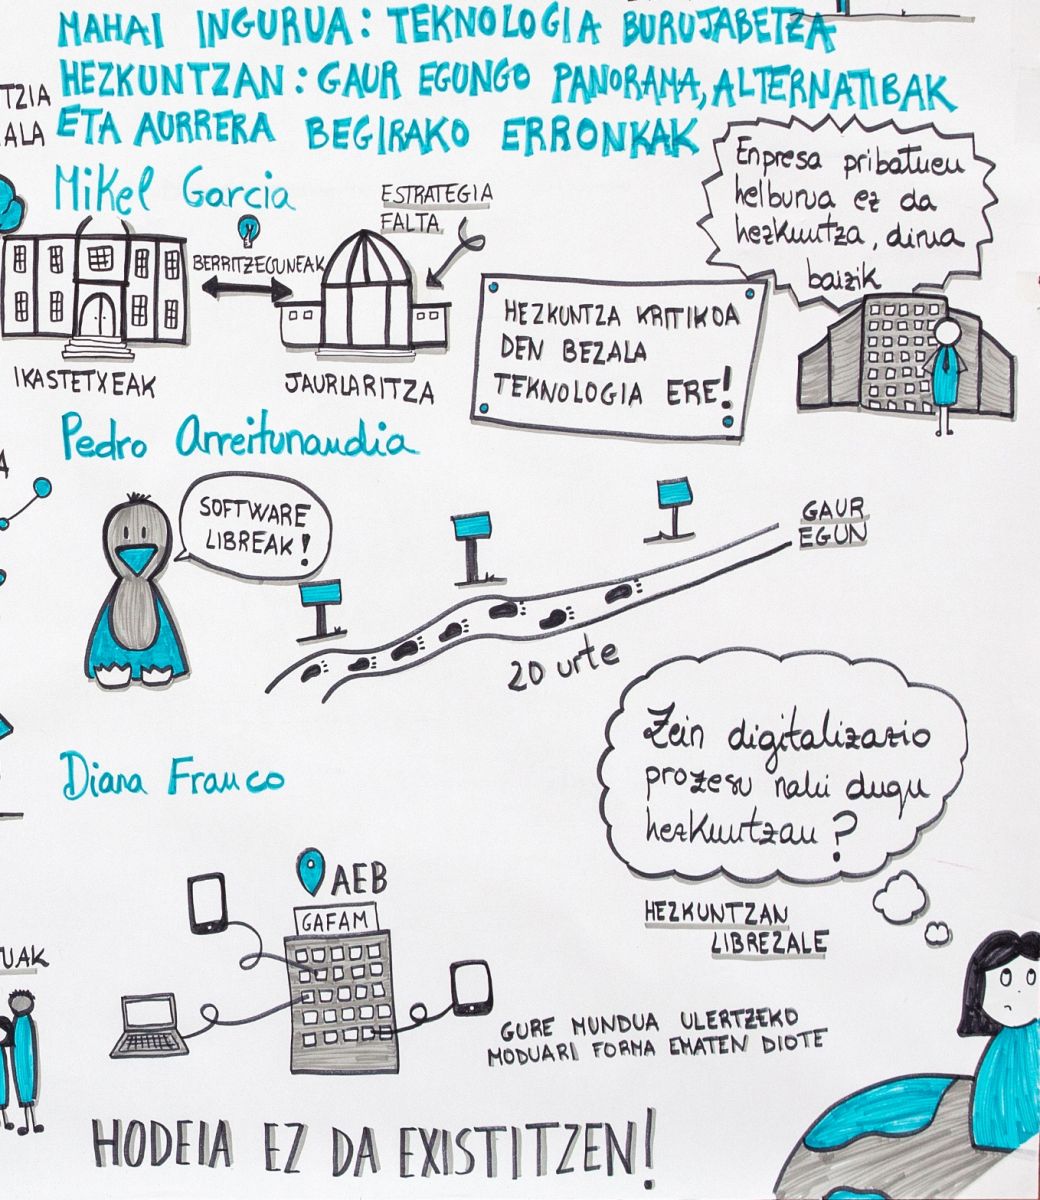 MAHAI INGURUA: TEKNOLOGIA BURUJABETZA
HEZKUNTZAN: GAUR EGUNGO PANORAMA, ALTERNATIBAK
ETA AURRERA BEGIRAKO ERRONKAK
TZIA
ALA
Mikel Garcia
ESTRATEGIA
FALTA
BERRITZEGUNEAK
IKASTETXEAK
JAURLARITZA
HEZKUNTZA KRITIKOA
DEN BEZALA
TEKNOLOGIA ERE!
Enpresa pribatuen
helburua ez da
hezkuntza, dirua
baizik
Pedro Arreitunandia
SOFTWARE
LIBREAK!
GAUR
EGUN
20 urte
Diana Franco
Zein digitalizazio
prozesu nahi dugu
hezkuntzan?
AEB
GAFAM
HEZKUNTZAN
LIBREZALE
UAK
GURE MUNDUA ULERTZEKO
MODUARI FORMA EMATEN DIOTE
HODEIA EZ DA EXISTITZEN!